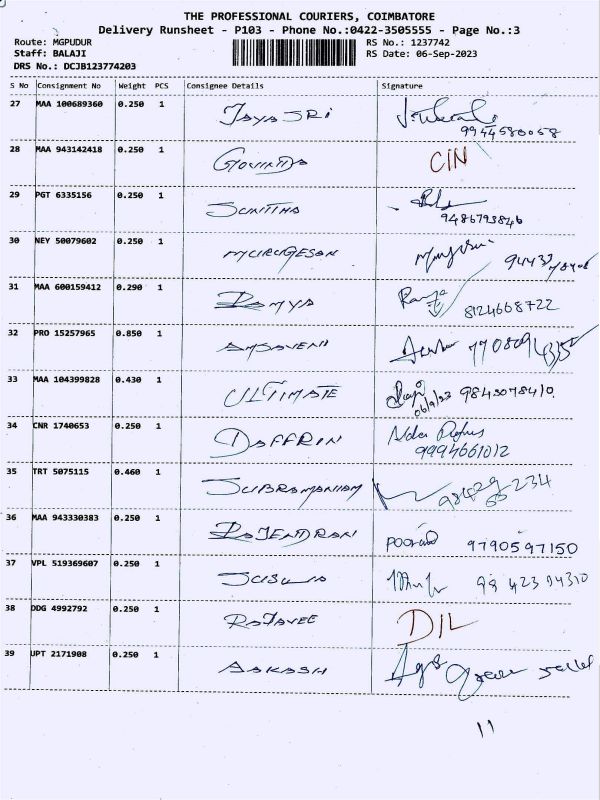 THE PROFESSIONAL COURIERS, COIMBATORE
Delivery Runsheet - P103 - Phone No.:0422-3505555 - Page No.:3
Route: MGPUDUR
Staff: BALAJI
DRS No.: DCJB123774203
RS No.: 1237742
RS Date: 06-Sep-2023
S No Consignment No Weight PCS Consignee Details Signature
27 MAA 100689360 0.250 1 JAYA SRI
9944580058
28 MAA 943142418 0.250 1 GOVINDA CIN
29 PGT 6335156 0.250 1 SUNITHA
9486793846
30 NEY 50079602 0.250 1 MURUGESAN
31 MAA 600159412 0.290 1 RAMYA Ramya
8124668722
32 PRO 15257965 0.850 1 AMSAVENI
33 MAA 104399828 0.430 1 ULTIMATE 9843078410
06/9/23
34 CNR 1740653 0.250 1 DAFFRIN
9994661012
35 TRT 5075115 0.460 1 SUBRAMANIAM
36 MAA 943330383 0.250 1 RAJENDRAN 9790597150
37 VPL 519369607 0.250 1
38 DDG 4992792 0.250 1 RAJAVEE DIL
39 UPT 2171908 0.250 1 AAKASH
11